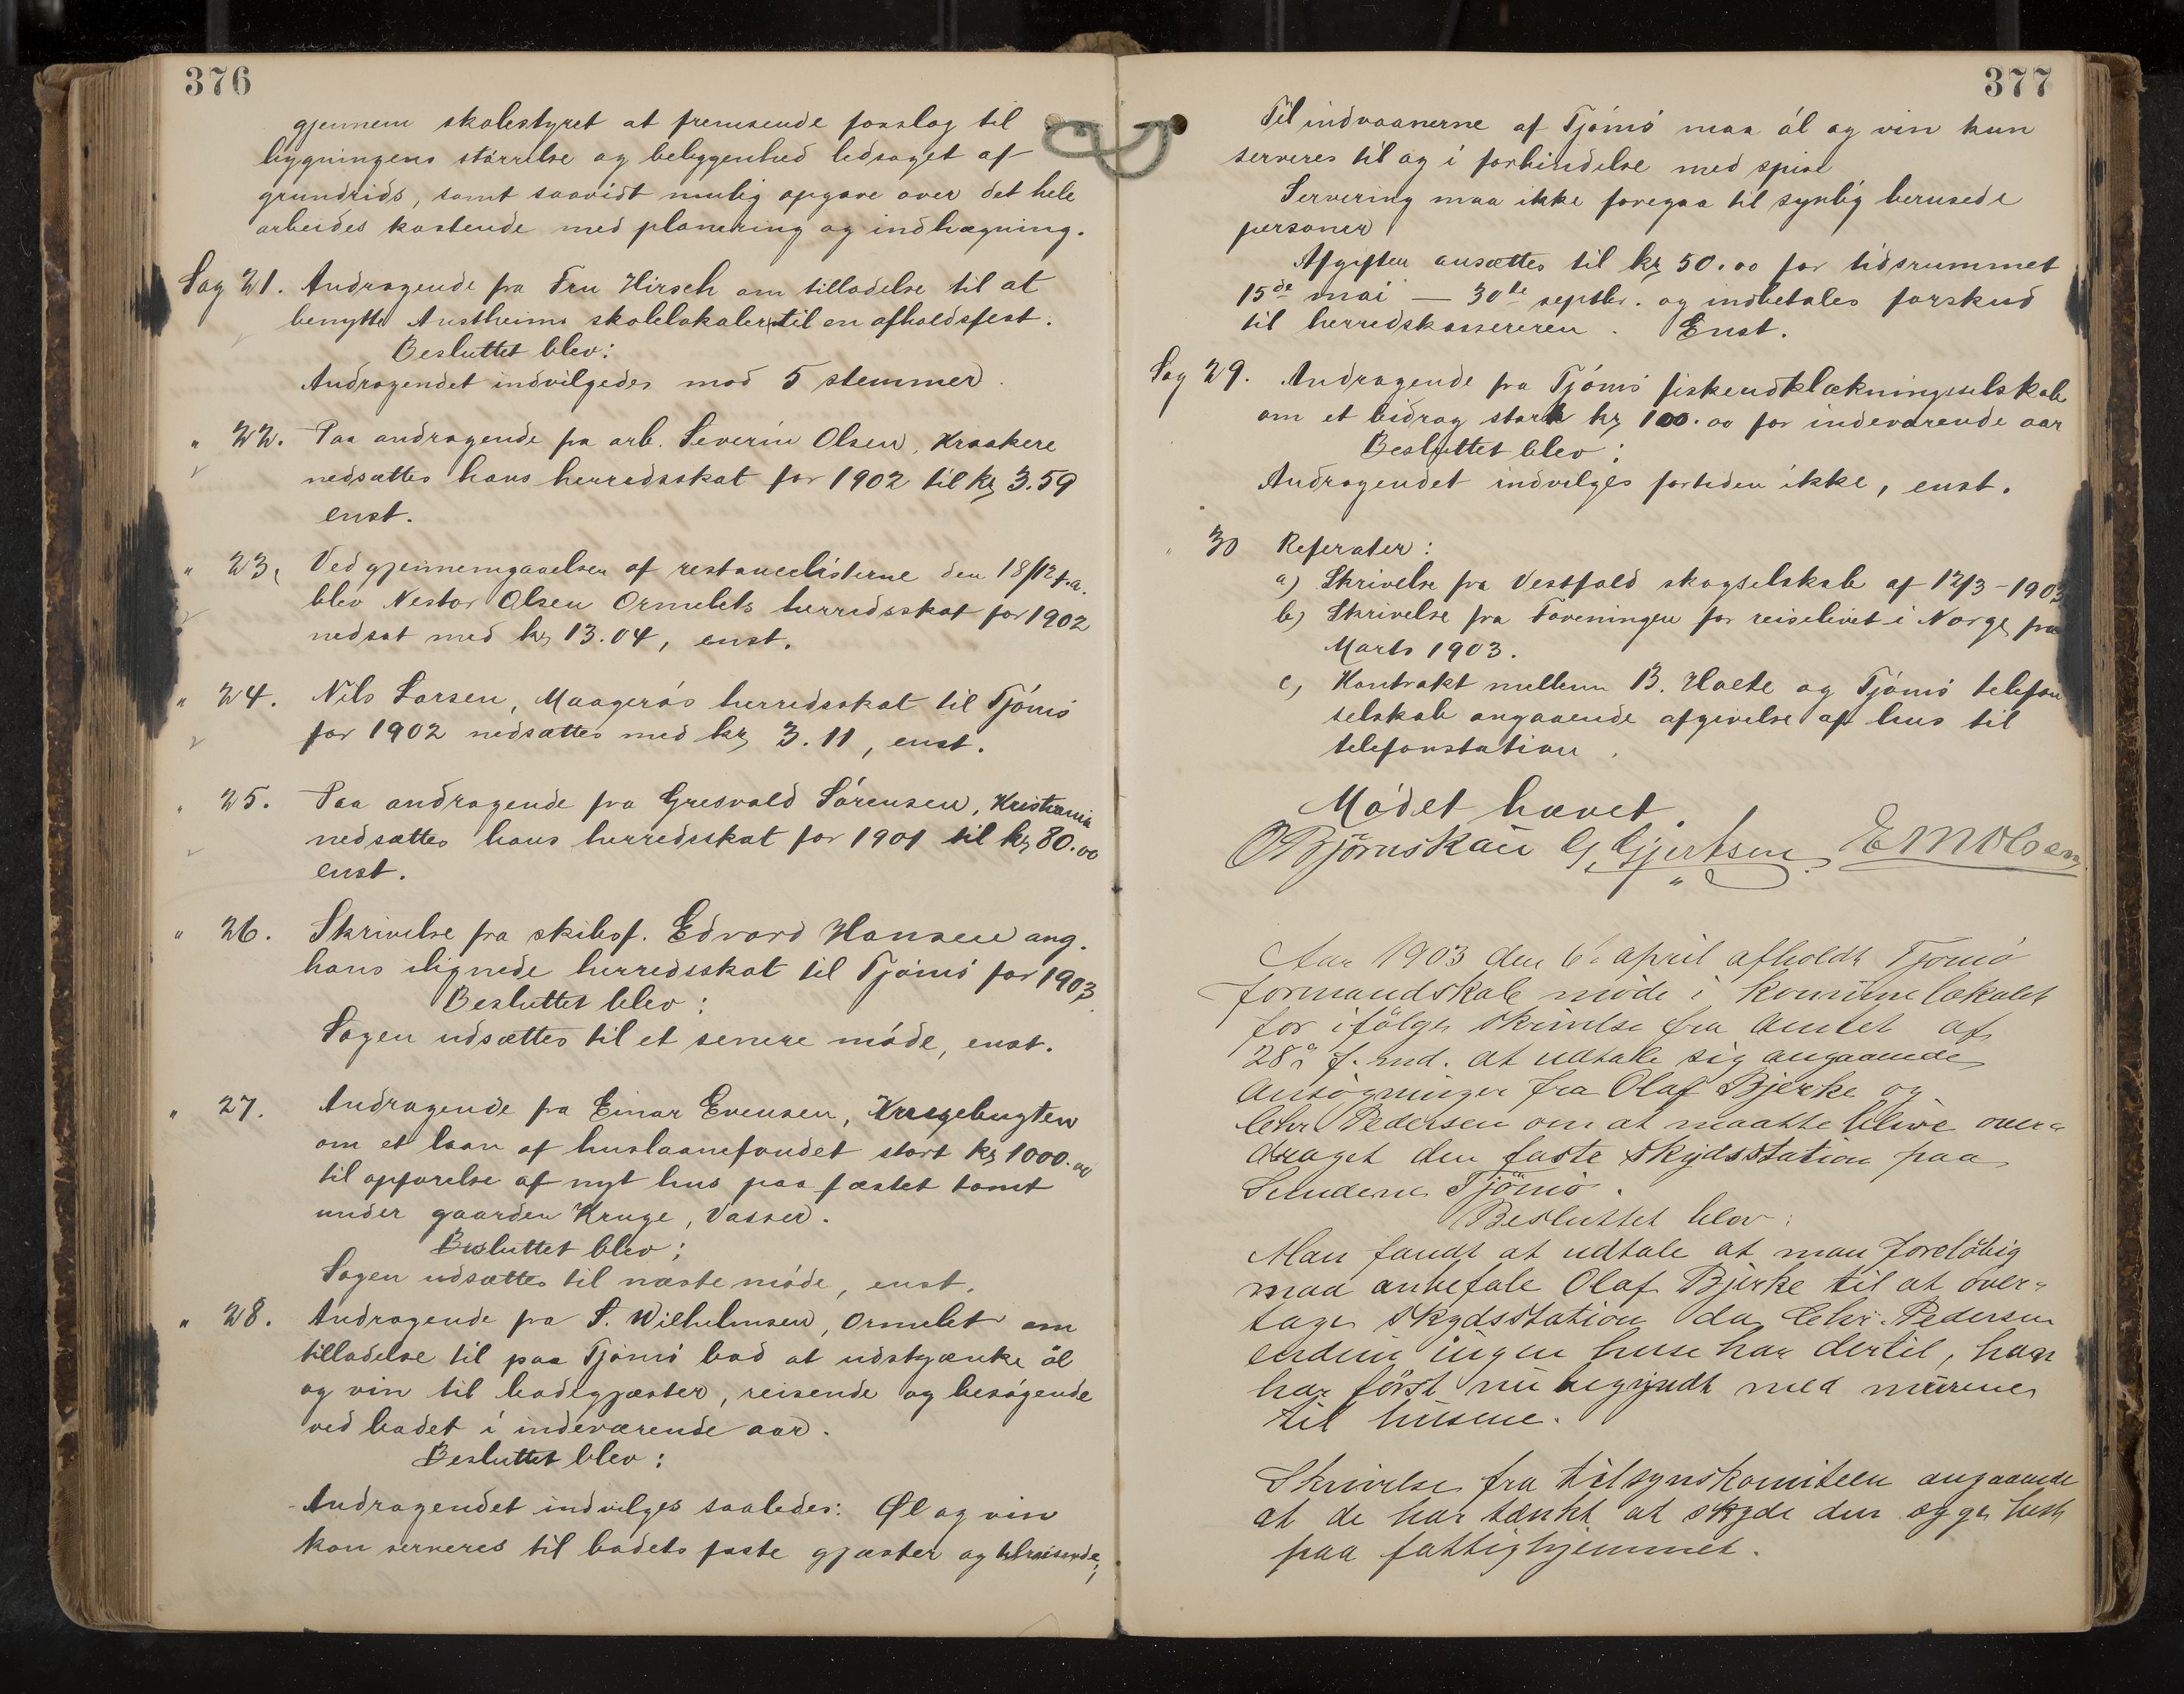 376
gjennem skolestyret at fremsende forslag til
bygningens störrelse og beliggenhed ledsaget af
grundrids, samt saavidt mulig opgave over det hele
arbeides kostende med planering og indhægning.
Sag 21. Andragende fra Fru Hirsch om tilladelse til at
benytte Austheims skolelokaler til en afholdsfest.
Besluttet blev:
Andragendet indvilgedes mod 5 stemmer.
" 22. Paa andragende fra arb. Severin Olsen, Kraakere
nedsættes hans herredsskat for 1902 til kr 3.59
enst.
" 23, Ved gjennemgaaelsen af restancelisterne den 18/12 f.a.
blev Nestor Olsen Ormelets herredsskat for 1902
nedsat med kr 13.04, enst.
" 24. Nils Larsen, Maagerös herredsskat til Tjömö
for 1902 nedsættes med kr 3.11, enst.
" 25. Paa andragende fra Gresvald Sörensen, Kristiania
nedsættes hans herredsskat for 1901 til kr 80.00
enst.
" 26. Skrivelse fra skibsf. Edvard Hansen ang.
hans ilignede herredsskat til Tjömö for 1903
Besluttet blev:
Sagen udsættes til et senere möde, enst.
" 27. Andragende fra Einar Evensen, Krugebugten
om et laan af huslaanefondet stort kr 1000.00
til opförelse af nyt hus paa fæstet tomt
under gaarden Kruge, Vasser.
Besluttet blev:
Sagen udsættes til næste möde, enst.
" 28. Andragende fra S. Wilhelmsen, Ormelet om
tilladelse til paa Tjömö bad at udskjænke öl
og vin til badegjæster, reisende og besögende
ved badet i indeværende aar.
Besluttet blev:
Andragendet indvilges saaledes: Øl og vin
kan serveres til badets faste gjæster og tilreisende;
377
Til indvaanerne af Tjömö maa öl og vin kun
serveres til og i forbindelse med spise
Servering maa ikke foregaa til synlig berusede
personer
Afgiften ansættes til kr 50.00 for tidsrummet
15de mai — 30te septbr. og indbetales forskud
til herredskassereren. Enst.
Sag 29. Andragende fra Tjömö fiskeudklækningsselskab
om et bidrag stort kr 100.00 for indeværende aar
Besluttet blev:
Andragendet indvilges fortiden ikke, enst.
" 30 Referater:
a) Skrivelse fra Vestfold skogselskab af 12/3 - 1903
b) Skrivelse fra Foreningen for reiselivet i Norge fra
Marts 1903.
c) Kontrakt mellem B. Holte og Tjömö telefon
selskab angaaende afgivelse af hus til
telefonstation.
Mödet hævet.
O Bjørnskau G. Gjertsen E M Olsen
Aar 1903 den 6te april afholdt Tjömö
formandskab möde i komunelokalet
for ifölge skrivelse fra amtet af
28de f. md. at udtale sig angaaende
ansögninger fra Olaf Bjerke og
Chr. Pedersen om at maatte blive over-
draget den faste skydsstation paa
Sundene Tjömö.
Besluttet blev:
Man fandt at udtale at man forelöbig
maa anbefale Olaf Bjerke til at over-
tage skydsstation da Chr. Pedersen
endnu ingen huse har dertil, han
har först nu begyndt med murene
til husene.
Skrivelse fra tilsynskomiteen angaaende
at de har tænkt at skyde den ögge hest
paa fattighjemmet.